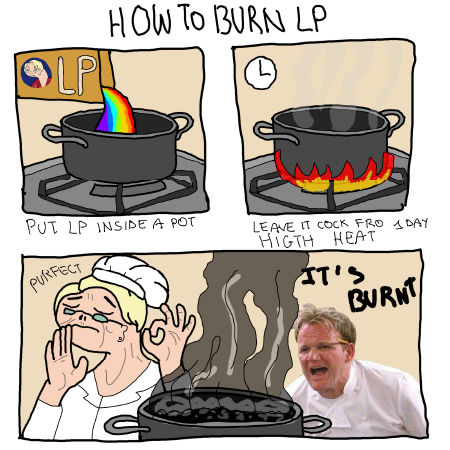 HOW TO BURN LP
LP
PUT LP INSIDE A POT
LEAVE IT COCK FRO 1 DAY
HIGTH HEAT
PURFECT
IT'S
BURNT